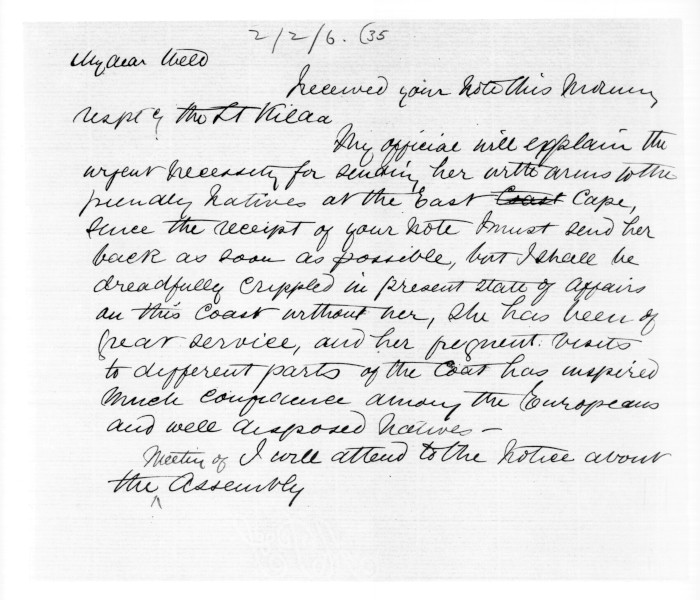 2/2/6. (35
My dear Weld
I received your Note this Morning
respt g the St Kilda
My official will explain the
urgent necessity for sending her with arms to the
friendly Natives at the East Coast Cape,
since the receipt of your Note I must send her
back as soon as possible, but I shall be
dreadfully crippled in present state of affairs
on this Coast without her, She has been of
great service, and her frequent visits
to different parts of the Coast has inspired
Much confidence among the Europeans
and well disposed Natives —
Meeting of I will attend to the Notice about
the ^ Assembly